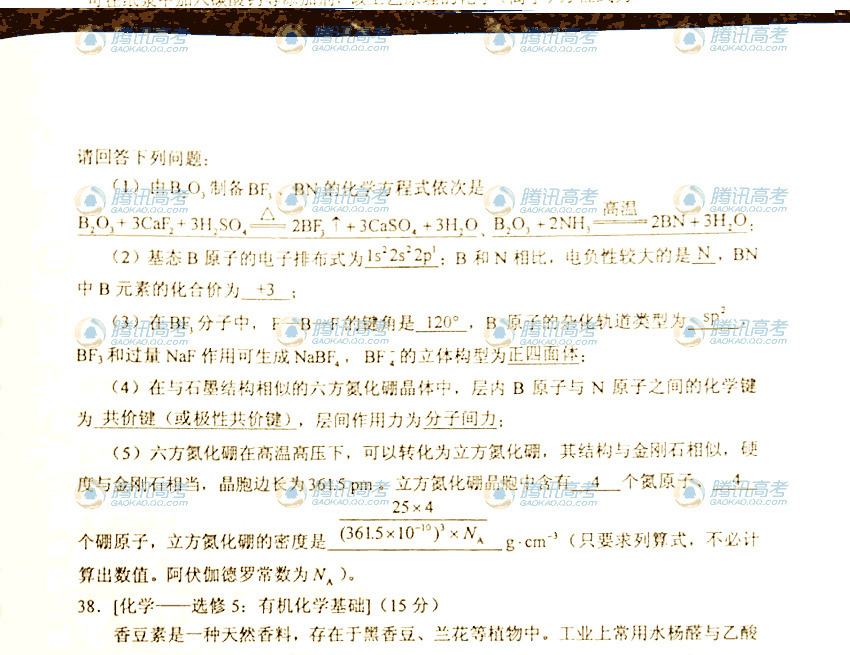 请回答下列问题:
(1) 由 B₂O₃ 制备 BF₃、BN 的化学方程式依次是
B₂O₃ + 3CaF₂ + 3H₂SO₄ ==△== 2BF₃ ↑ + 3CaSO₄ + 3H₂O、B₂O₃ + 2NH₃ ==高温== 2BN + 3H₂O;
(2) 基态 B 原子的电子排布式为 1s²2s²2p¹; B 和 N 相比, 电负性较大的是 N, BN
中 B 元素的化合价为 +3 ;
(3) 在 BF₃ 分子中, F—B—F 的键角是 120°, B 原子的杂化轨道类型为 sp²,
BF₃ 和过量 NaF 作用可生成 NaBF₄, BF₄⁻ 的立体构型为正四面体;
(4) 在与石墨结构相似的六方氮化硼晶体中, 层内 B 原子与 N 原子之间的化学键
为 共价键(或极性共价键), 层间作用力为分子间力;
(5) 六方氮化硼在高温高压下, 可以转化为立方氮化硼, 其结构与金刚石相似, 硬
度与金刚石相当, 晶胞边长为 361.5 pm。立方氮化硼晶胞中含有 4 个氮原子、 4
25×4
个硼原子, 立方氮化硼的密度是 (361.5×10⁻¹⁰)³×N_A g·cm⁻³ (只要求列算式, 不必计
算出数值。阿伏伽德罗常数为 N_A )。
38. [化学——选修 5: 有机化学基础] (15 分)
香豆素是一种天然香料, 存在于黑香豆、兰花等植物中。工业上常用水杨醛与乙酸
腾讯高考
GAOKAO.QQ.COM